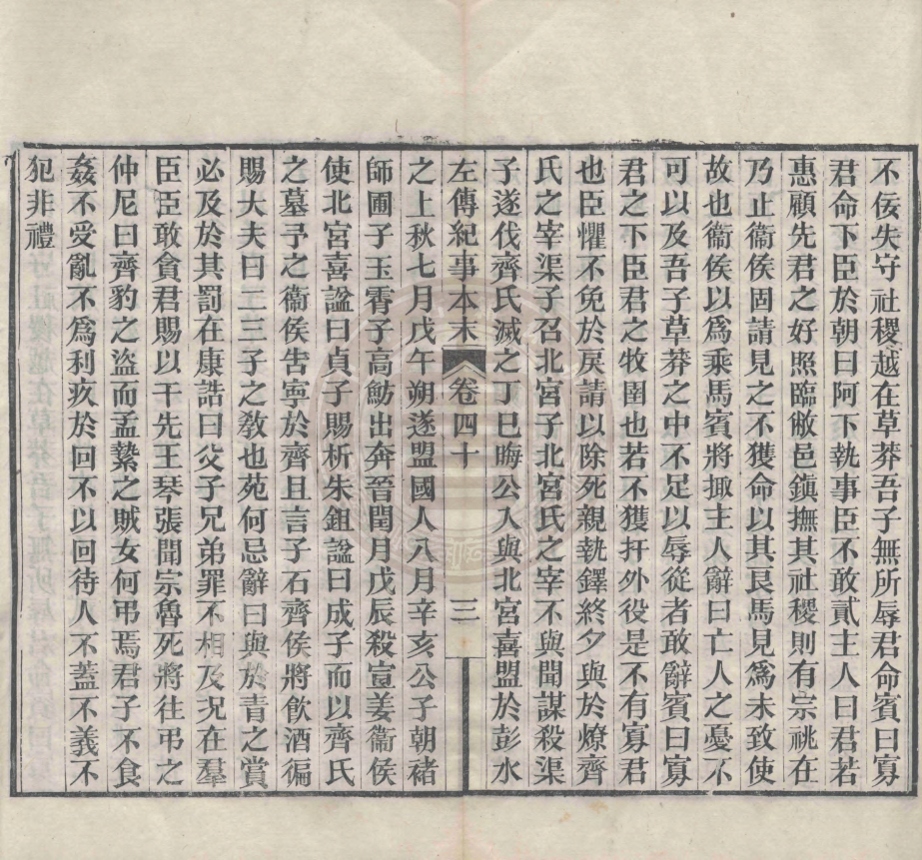 不佞失守社稷越在草莽吾子無所辱君命賓曰寡
君命下臣於朝曰阿下執事臣不敢貳主人曰君若
惠顧先君之好照臨敝邑鎮撫其社稷則有宗祧在
乃止衞侯固請見之不獲命以其良馬見爲未致使
故也衞侯以爲乘馬賓將掫主人辭曰亡人之憂不
可以及吾子草莽之中不足以辱從者敢辭賓曰寡
君之下臣君之牧圉也若不獲扞外役是不有寡君
也臣懼不免於戾請以除死親執鐸終夕與於燎齊
氏之宰渠子召北宮子北宮氏之宰不與聞謀殺渠
子遂伐齊氏滅之丁巳晦公入與北宮喜盟於彭水
左傳紀事本末 卷四十 三
之上秋七月戊午朔遂盟國人八月辛亥公子朝褚
師圃子玉霄子高魴出奔晉閏月戊辰殺宣姜衞侯
使北宮喜諡曰貞子賜析朱鉏諡曰成子而以齊氏
之墓予之衞侯告寧於齊且言子石齊侯將飮酒徧
賜大夫曰二三子之敎也苑何忌辭曰與於青之賞
必及於其罰在康誥曰父子兄弟罪不相及況在羣
臣臣敢貪君賜以干先王琴張聞宗魯死將往弔之
仲尼曰齊豹之盜而孟縶之賊女何弔焉君子不食
姦不受亂不爲利疚於回不以回待人不蓋不義不
犯非禮